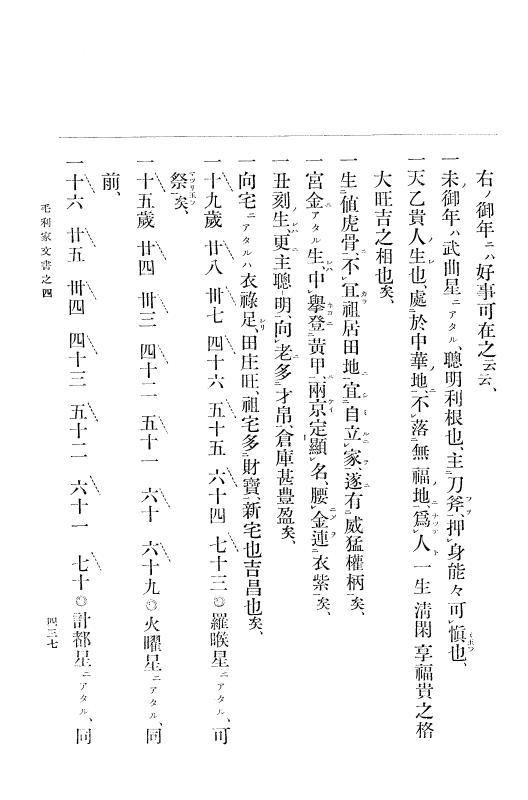 右ノ御年ニハ好事可在之云云、
一未御年ハ武曲星ニアタル、聰明利根也、主刀斧、押身能々可愼也、
一天乙貴人生也、處於中華地、不落無福地、爲人一生清閑享福貴之格
大旺吉之相也矣、
一生値虎骨、不宜祖居田地、宜自立家、遂有威猛權柄矣、
一宮金ニアタル生レハ、中擧登黃甲、兩京定顯名、腰金連衣紫矣、
一丑刻生、更主聰明、向老多才帛、倉庫甚豊盈矣、
一向宅ニアタルハ衣祿足、田庄旺、祖宅多財寶、新宅也吉昌也矣、
一十九歲 廿八 卅七 四十六 五十五 六十四 七十三◎羅睺星ニアタル、可
祭矣、
一十五歲 廿四 卅三 四十二 五十一 六十 六十九◎火曜星ニアタル、同
前、
一十六 廿五 卅四 四十三 五十二 六十一 七十◎計都星ニアタル、同
毛利家文書之四
四三七